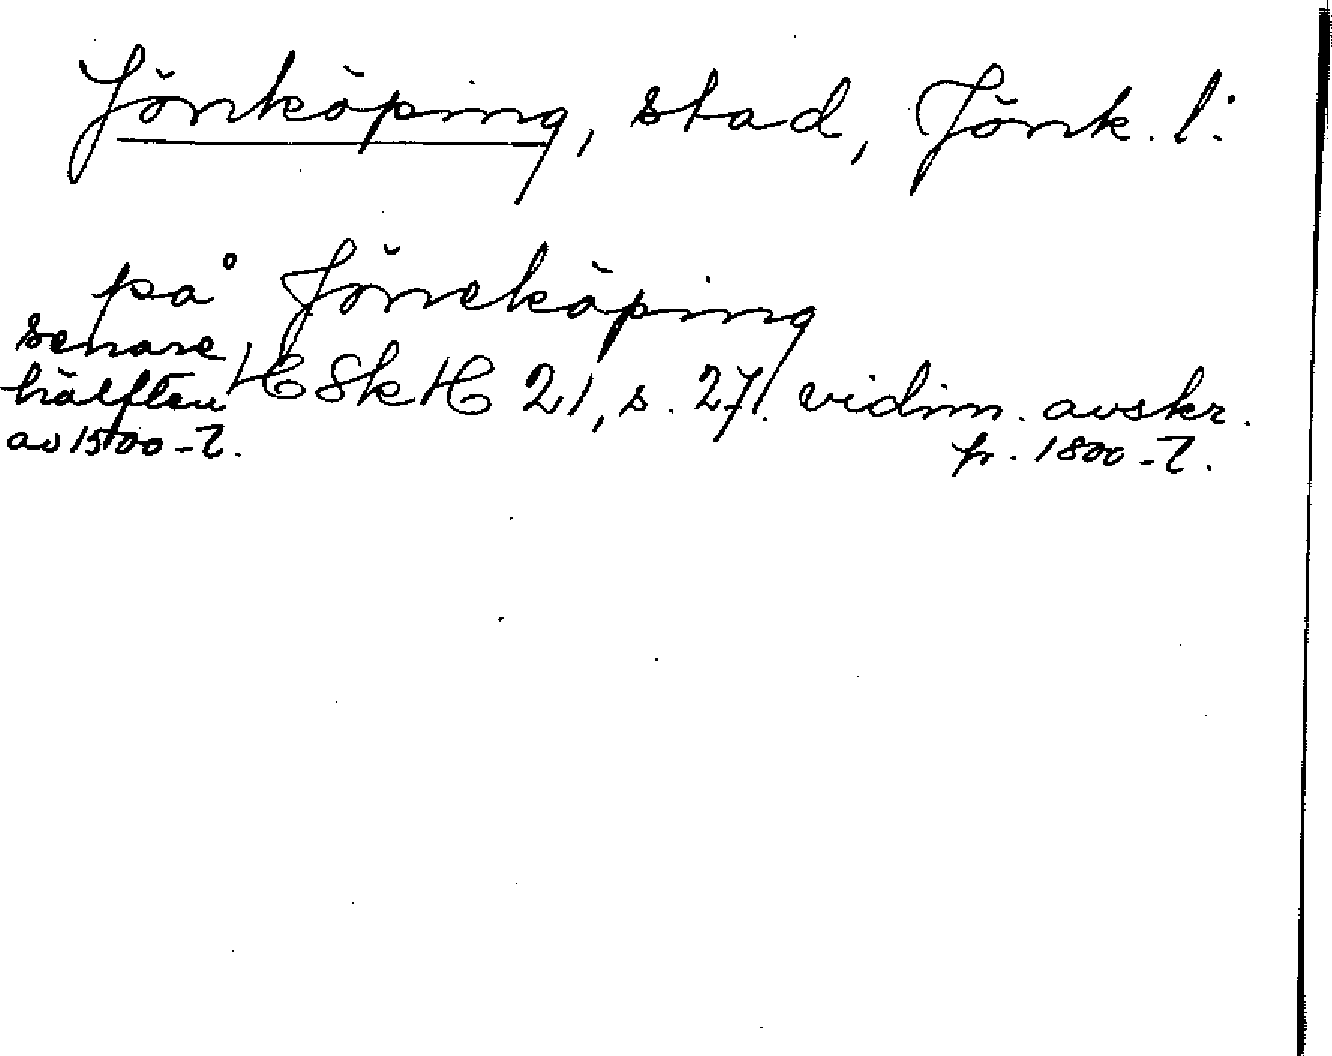 Jönköping, stad, Jönk. l:
på Jöneköping
senare
hälften HSkH 21, s. 271. vidim. avskr.
av 1500-t. fr. 1800-t.